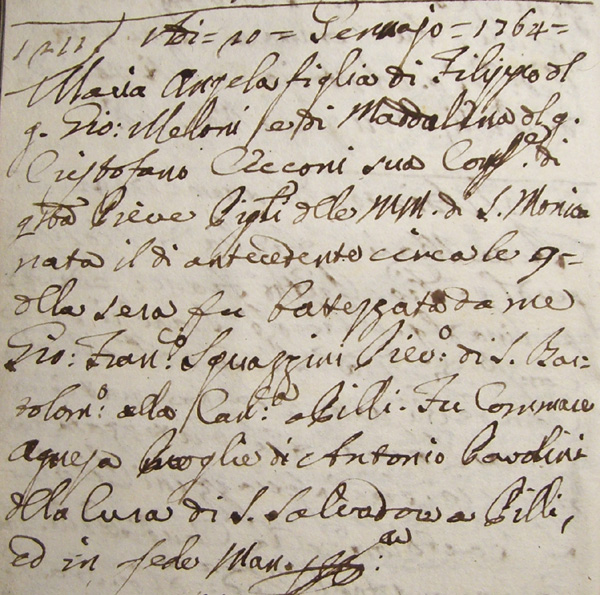 Adi = 20 = Gennajo = 1764 =
Maria Angela figlia di Filippo dl
q. Gio: Meloni e di Maddalena dl q.
Cristofano Cecconi sua Cons.e di
qta Pieve Pigli delle MM. di S. Monica
nata il di antecedente circa le 9 =
della sera fu battezzata da me
Gio: Fran.co Squazzini Piev.o di S. Bar=
tolom.o alla Can.ca a Pilli. Fu Commare
Agnesa moglie di Antonio Paolini
della Cura di S. Salvadore a Pilli,
ed in fede Man.